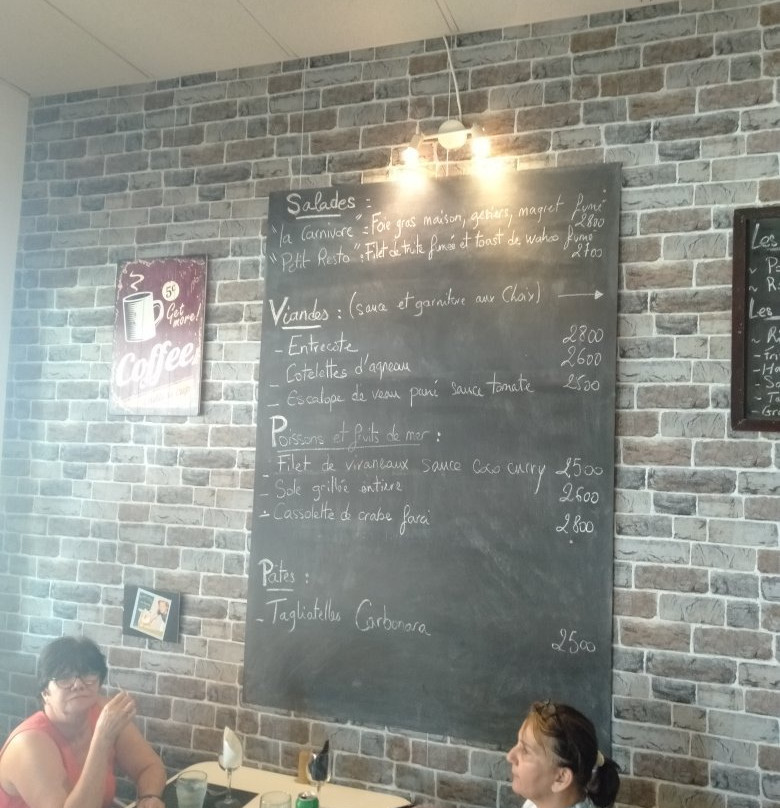 Salades :
"La Carnivore" : Foie gras maison, gésiers, magret fumé
2800
"Petit Resto" : Filet de truite fumée et toast de wahoo fumé
2700
Viandes : (sauce et garniture aux choix) →
- Entrecote 2800
- Cotelettes d'agneau 2600
- Escalope de veau pané sauce tomate 2500
Poissons et fruits de mer :
- Filet de vivaneaux sauce coco curry 2500
- Sole grillée entière 2600
- Cassolette de crabe farci 2800
Pâtes :
- Tagliatelles Carbonara
2500
5¢
Get more!
Coffee
Les
Les